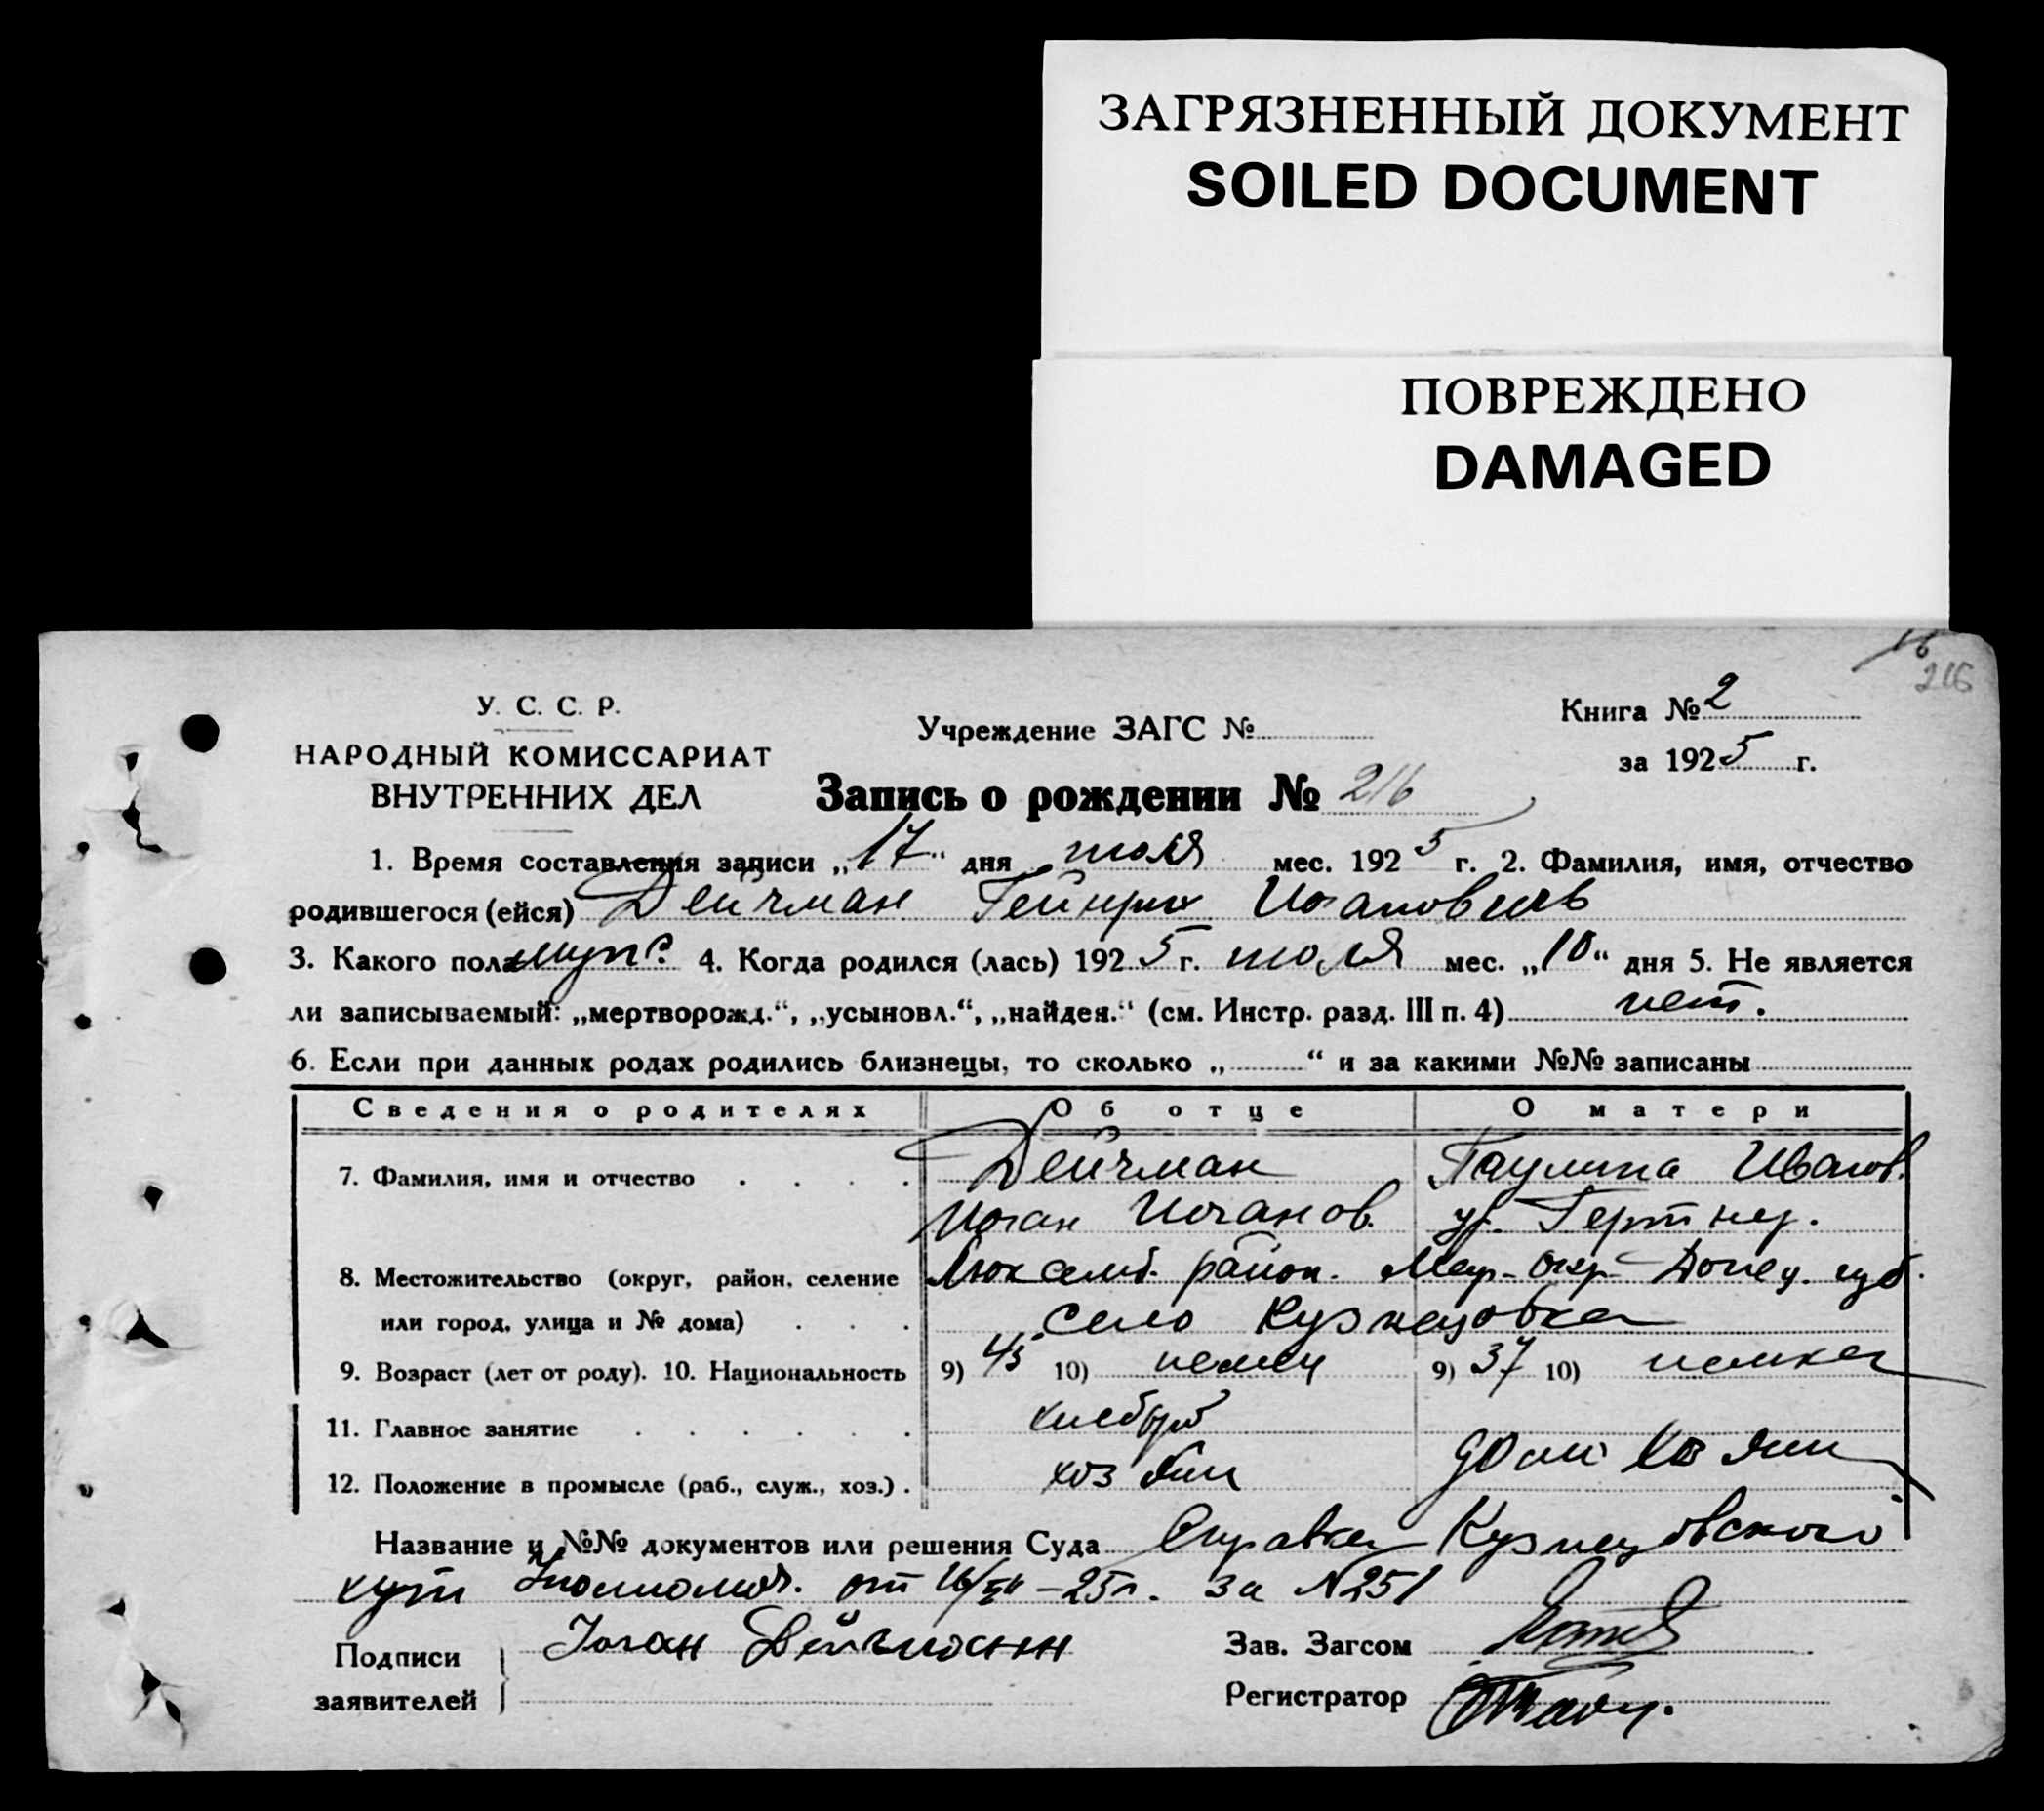 ЗАГРЯЗНЕННЫЙ ДОКУМЕНТ
SOILED DOCUMENT
ПОВРЕЖДЕНО
DAMAGED
16
216
У. С. С. Р.
НАРОДНЫЙ КОМИССАРИАТ
ВНУТРЕННИХ ДЕЛ
Учреждение ЗАГС №
Книга № 2
за 1925 г.
Запись о рождении № 216
1. Время составления записи „17“ дня июля мес. 1925 г. 2. Фамилия, имя, отчество
родившегося (ейся) Дейчман Гейнрих Иогановичь
3. Какого пола муж. 4. Когда родился (лась) 1925 г. июля мес. „10“ дня 5. Не является
ли записываемый: „мертворожд.“, „усыновл.“, „найден.“ (см. Инстр. разд. III п. 4) нет.
6. Если при данных родах родились близнецы, то сколько „ “ и за какими №№ записаны
Сведения о родителях Об отце О матери
7. Фамилия, имя и отчество Дейчман Паулина Иванов.
Иоган Иоганов. ур. Гертнер.
8. Местожительство (округ, район, селение Люксемб. район. Мар. окр. Донец. губ.
или город, улица и № дома) село Кузнецовка
9. Возраст (лет от роду). 10. Национальность 9) 45 10) немец 9) 37 10) немка
11. Главное занятие хлебороб
12. Положение в промысле (раб., служ., хоз.) хозяин дом хозяин
Название и №№ документов или решения Суда Справка Кузнецовского
хут Уполномоч. от 16/VII–25 г. за №251
Подписи
заявителей
Иоган Дейчманн
Зав. Загсом
Регистратор